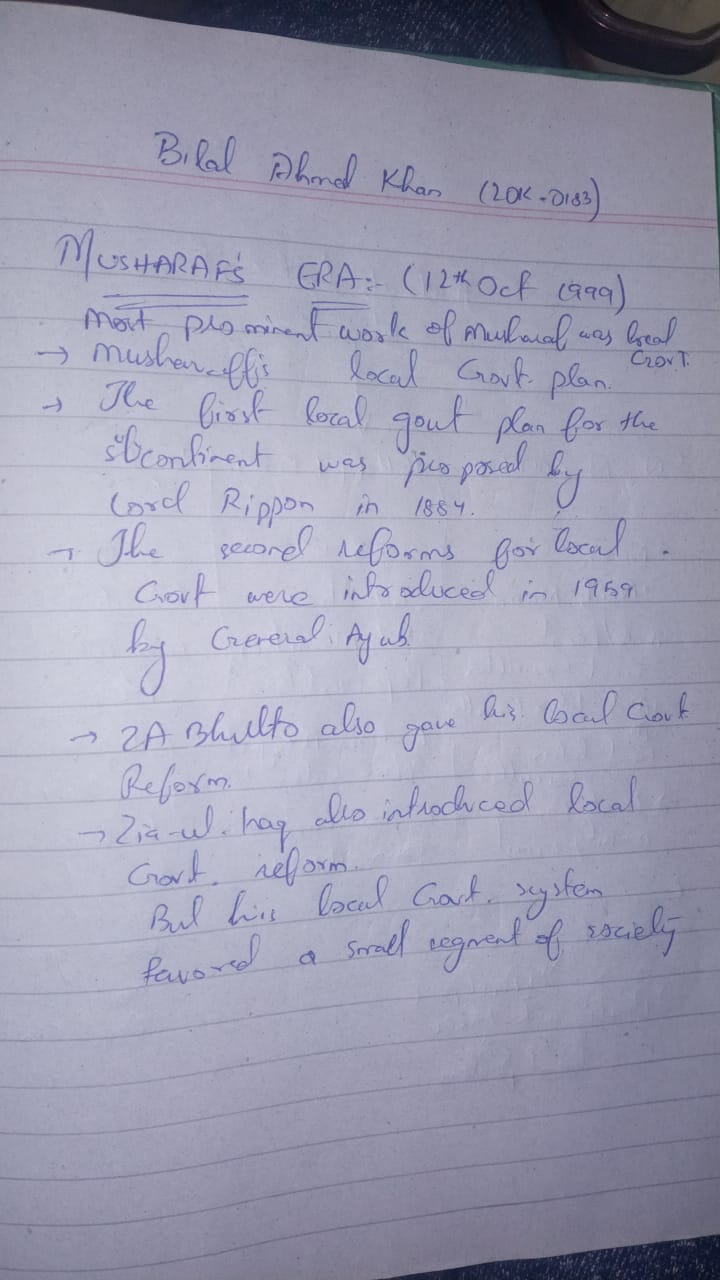 Bilal Ahmed Khan (20K-0183)
MUSHARAF'S ERA:- (12th Oct 1999)
Most prominent work of Musharaf was local Govt.
→ Musharaff's local Govt. plan.
→ The first local govt plan for the
subcontinent was proposed by
Lord Rippon in 1884.
→ The second reforms for local
Govt were introduced in 1959
by General Ayub
→ ZA Bhutto also gave his local Govt
Reform.
→ Zia-ul-haq also introduced local
Govt. reform.
But his local Govt. system
favored a small segment of society